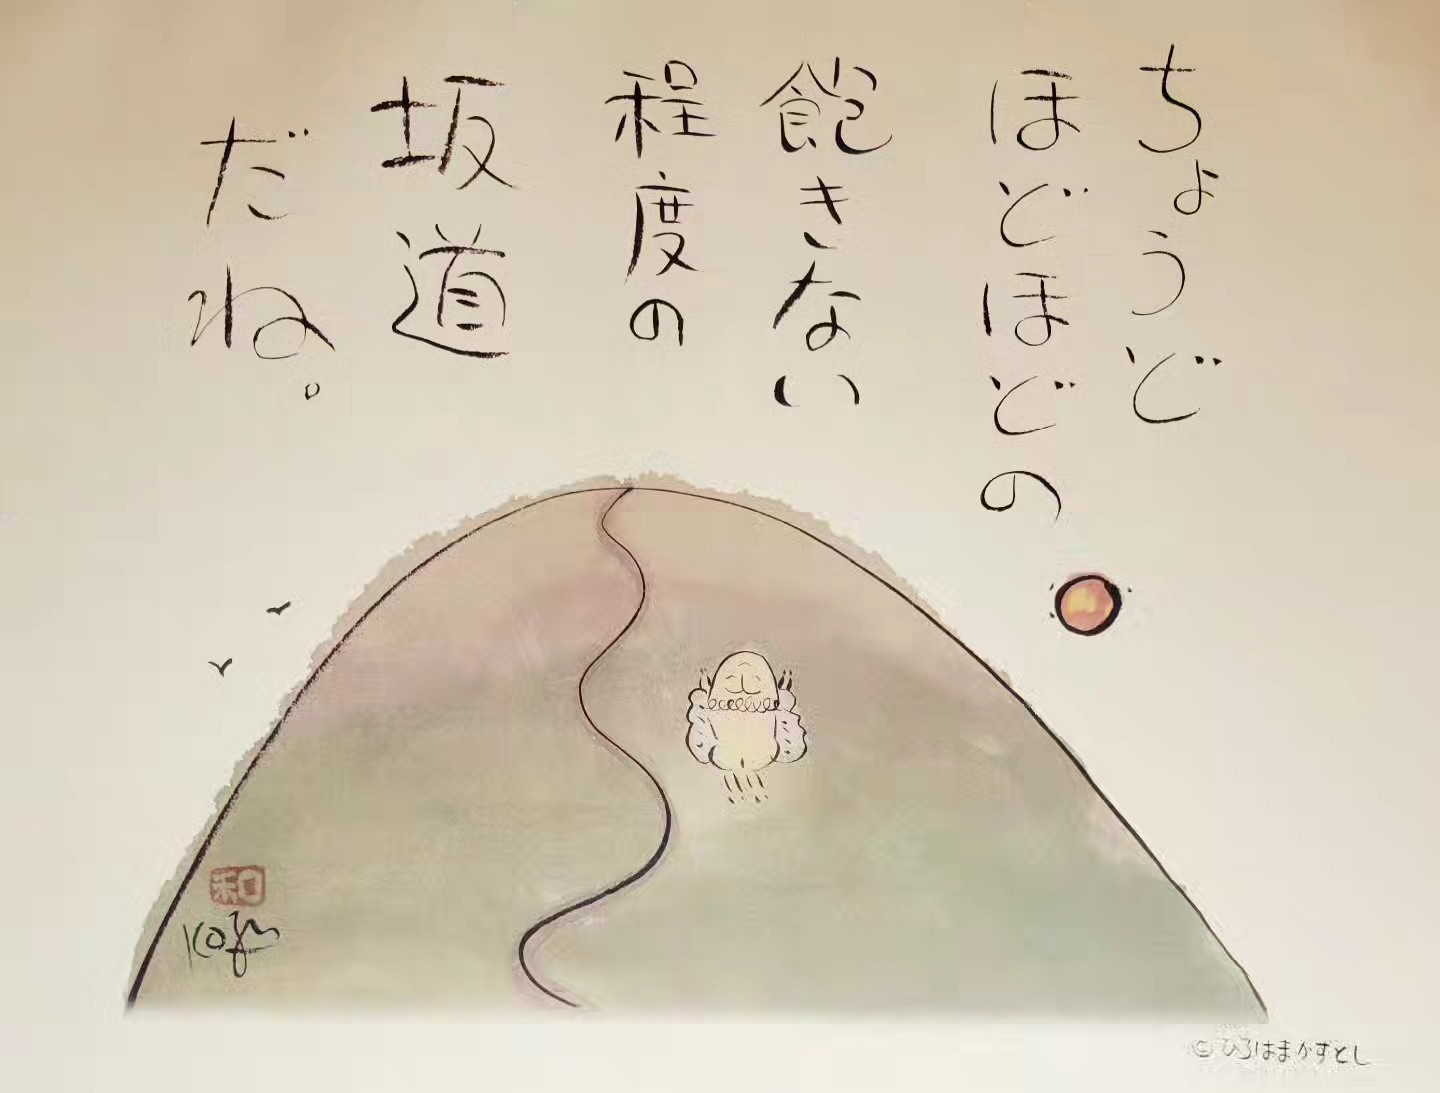 ちょうど
ほどほどの
飽きない
程度の
坂道
だね。
和
©ひろはまかずとし